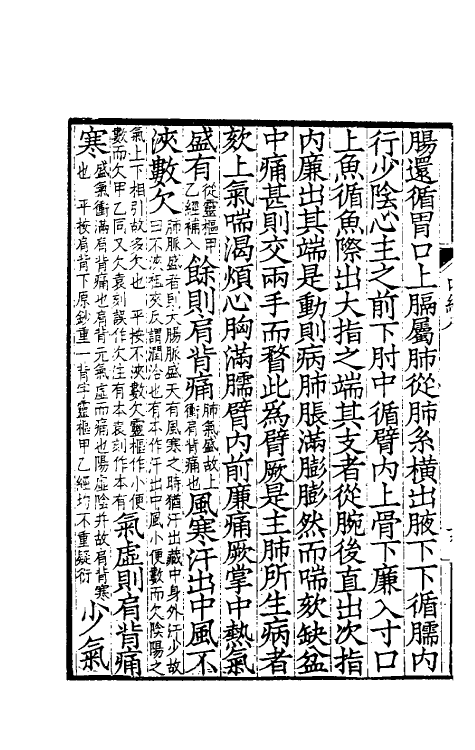 腸還循胃口上膈屬肺從肺系橫出腋下下循臑內
行少陰心主之前下肘中循臂內上骨下廉入寸口
上魚循魚際出大指之端其支者從腕後直出次指
內廉出其端是動則病肺脹滿膨膨然而喘欬缺盆
中痛甚則交兩手而瞀此為臂厥是主肺所生病者
欬上氣喘渴煩心胸滿臑臂內前廉痛厥掌中熱氣
盛有從靈樞甲乙經補入餘則肩背痛肺氣盛故上衝肩背痛也風寒汗出中風不
浹數欠肺脈盛有則大腸脈盛天有風寒之時猶汗出藏中身外汗少故曰不浹祖夾反謂潤洽也有本作汗出中風小便數而欠陰陽之
氣上下相引故多欠也 平按不浹數欠靈樞作小便數而欠甲乙同又欠袁刻誤作次注有本袁刻作本有氣虛則肩背痛
寒盛氣衝滿肩背痛也肩背元氣虛而痛也陽虛陰并故肩背寒也 平按肩背下原鈔重一背字靈樞甲乙經均不重疑衍少氣